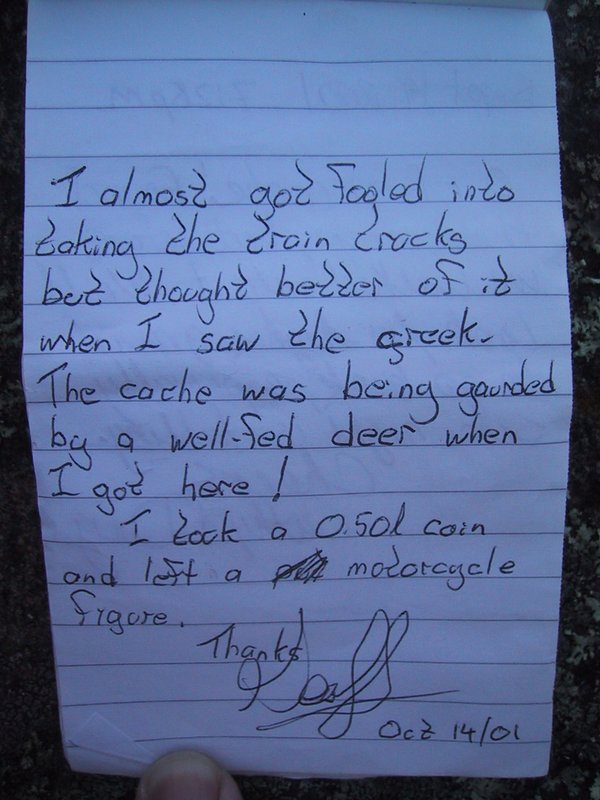 I almost got fooled into
taking the train tracks
but thought better of it
when I saw the creek.
The cache was being gaurded
by a well-fed deer when
I got here!
I took a 0.50l coin
and left a motorcycle
figure.
Thanks
Oct 14/01